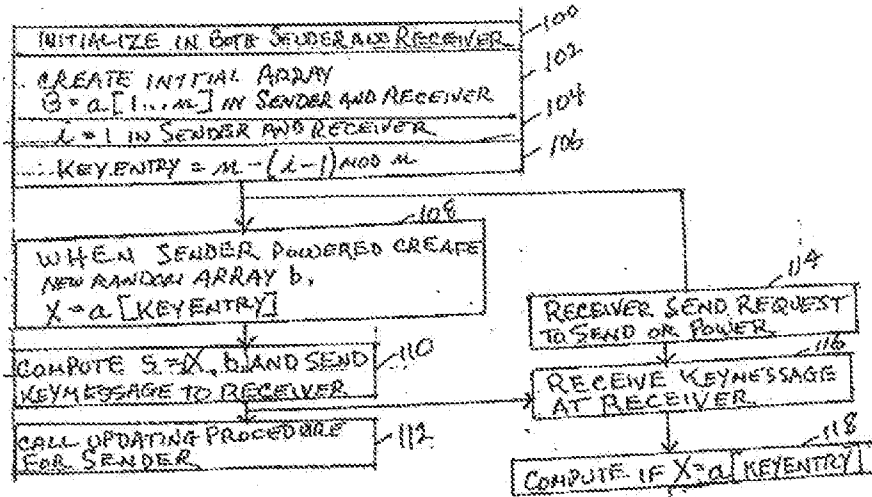 100
INITIALIZE IN BOTH SENDER AND RECEIVER
102
CREATE INITIAL ARRAY
B = a [1...n] IN SENDER AND RECEIVER
104
i = 1 IN SENDER AND RECEIVER
106
KEYENTRY = n - (i-1) MOD n
108
WHEN SENDER POWERED CREATE
NEW RANDOM ARRAY b,
X = a [KEYENTRY]
110
COMPUTE S = X, b AND SEND
KEYMESSAGE TO RECEIVER
112
CALL UPDATING PROCEDURE
FOR SENDER
114
RECEIVER SEND REQUEST
TO SEND OR POWER
116
RECEIVE KEYMESSAGE
AT RECEIVER
118
COMPUTE IF X = a [KEYENTRY]